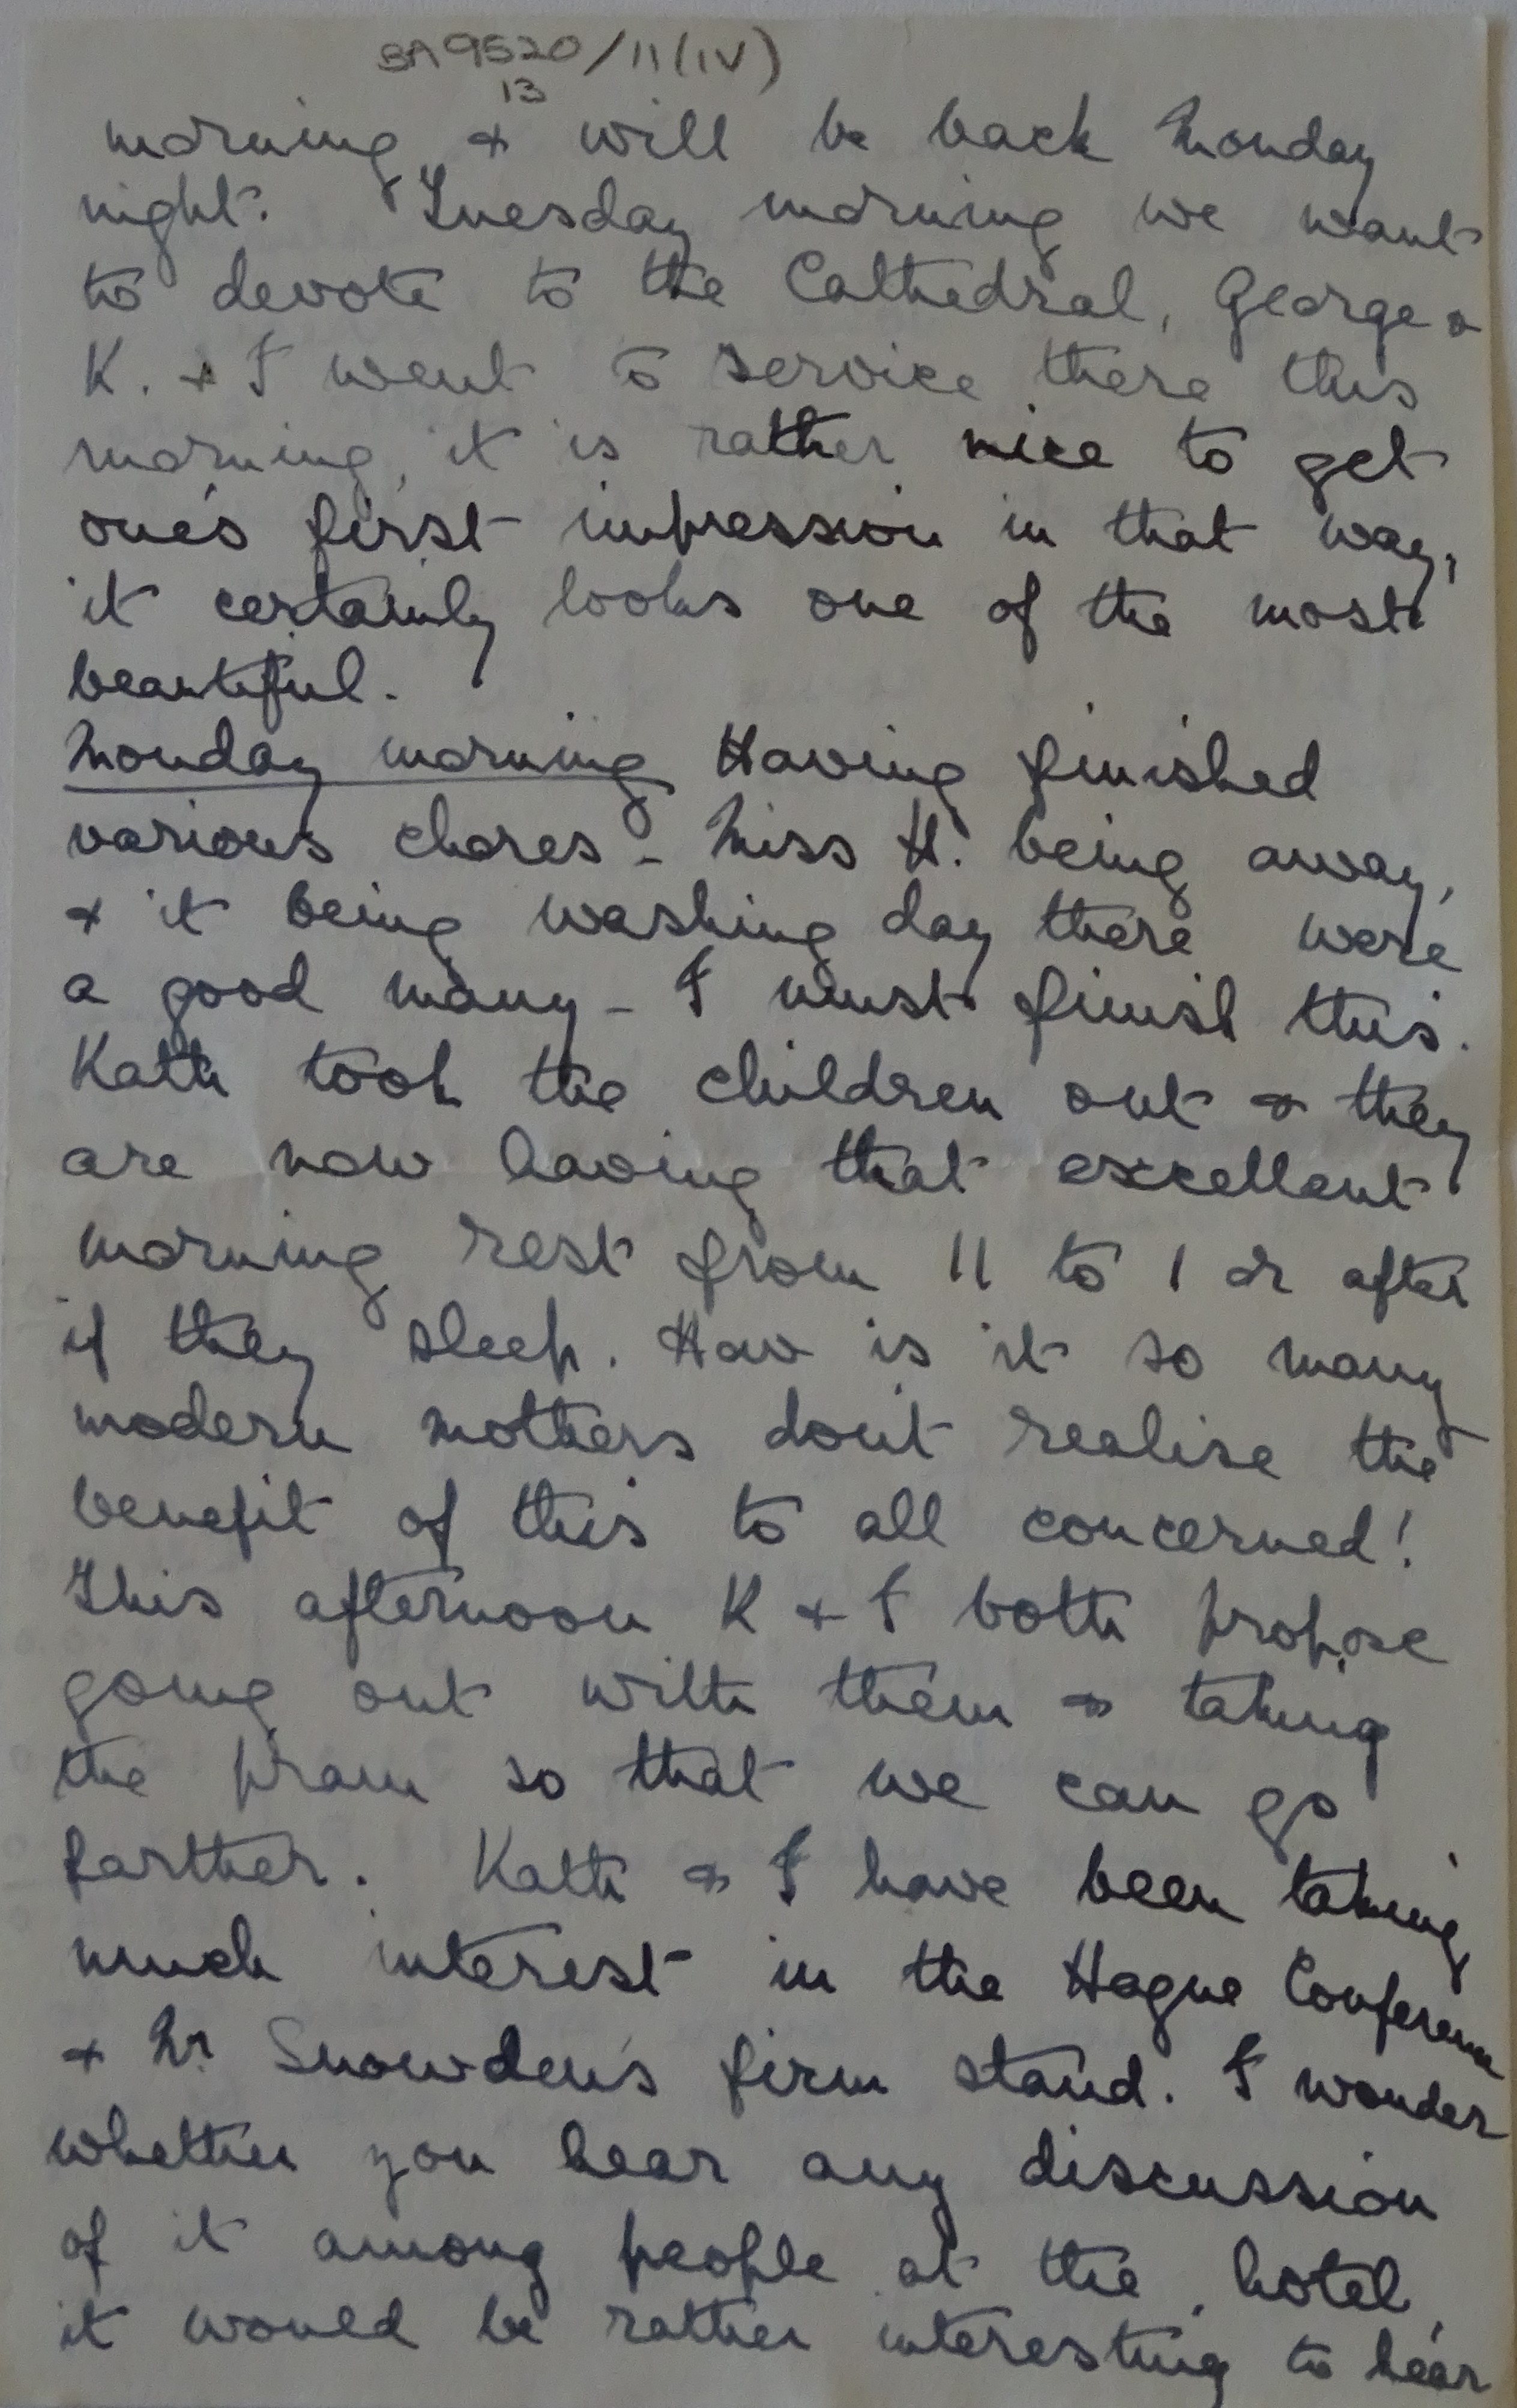 BA9520/11(IV)
13
morning, & will be back Monday
night. Tuesday morning we want
to devote to the Cathedral, George &
K. & I went to service there this
morning, it is rather nice to get
one's first impression in that way,
it certainly looks one of the most
beautiful.
Monday morning Having finished
various chores - Miss H. being away,
& it being washing day there were
a good many - I must finish this.
Kath took the children out & they
are now having that excellent
morning rest from 11 to 1 or after
if they sleep. How is it so many
modern mothers don't realise the
benefit of this to all concerned!
This afternoon K & I both propose
going out with them & taking
the pram so that we can go
farther. Kath & I have been taking
much interest in the Hague Conference
& Mr Snowden's firm stand. I wonder
whether you hear any discussion
of it among people at the hotel,
it would be rather interesting to hear